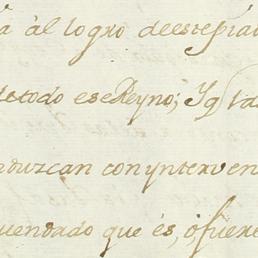 á al logro de este piad
de todo ese Reyno; Y q̃ la
nduzcan con ynterven
uendado que és, ó fuere